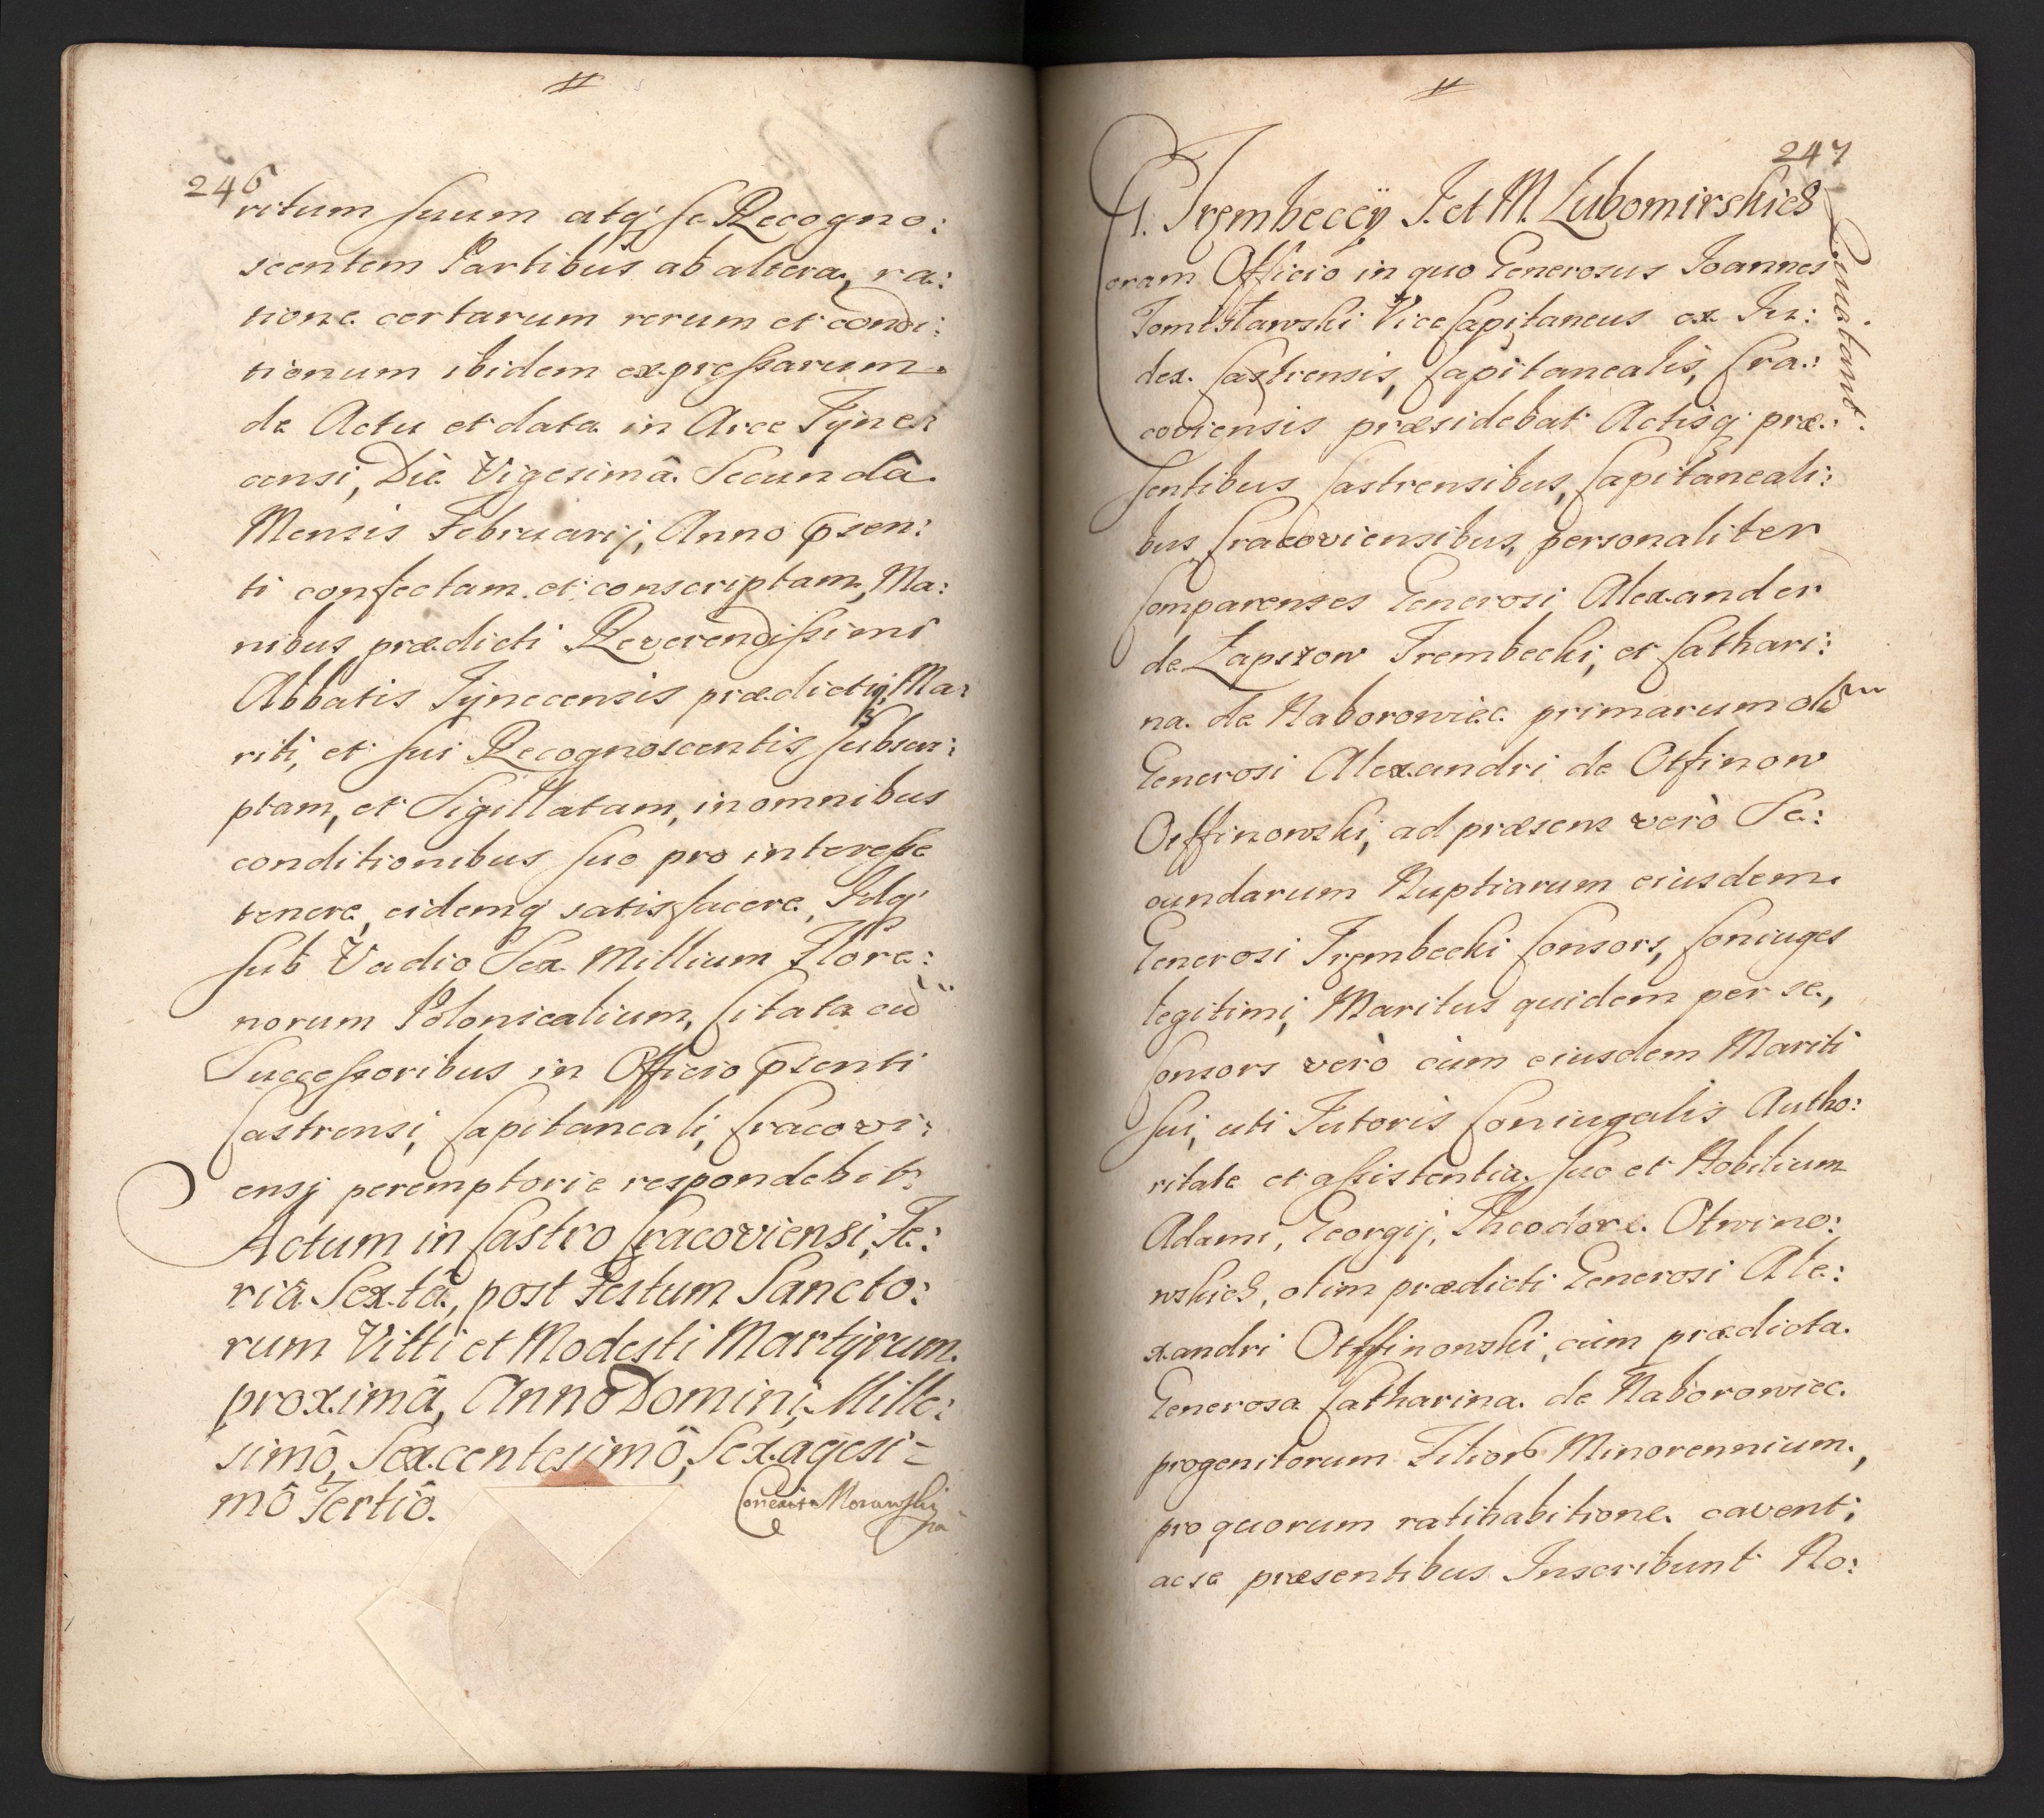 246
ritum suum atq; se Recogno:
scentem Partibus ab altera, ra:
tione certarum rerum et condi:
tionum ibidem expressarum
de Actu et data in Arce Tyne:
censi, Die Vigesimâ Secundâ
Mensis Februarij, Anno psen:
ti confectam et conscriptam, Ma:
nibus prædicti Reverendissimi
Abbatis Tynecensis prædictiq; Ma:
riti, et sui Recognoscentis subscri:
ptam, et Sigillatam, in omnibus
conditionibus suo pro interesse
tenere, eidemq; satisfacere, Idq;
sub Vadio Sex Millium Flore:
norum Polonicalium, Citata cũ
Successoribus in Officio psenti
Castrensi, Capitaneali, Cracovi:
ensj peremptorie respondebit.
Actum in Castro Cracoviensi, Fe:
riâ Sextâ, post Festum Sancto:
rum Vitti et Modesti Martÿrum
proximâ, Anno Domini, Mille:
simô, Sexcentesimô, Sexagesi=
mô Tertiô.
247
G. Trembeccÿ I. et M. Lubomirskies
Quietant.
Coram Officio in quo Generosus Ioannes
Tomisławski Vice Capitaneus ex Iu:
dex Castrensis, Capitanealis, Cra:
coviensis præsidebat Actisq; præ:
sentibus Castrensibus, Capitaneali:
bus Cracoviensibus, personaliter
Comparentes Generosi Alexander
de Łapszow Trembecki, et Cathari:
na de Naborowiec primarum
Generosi Alexandri de Otfinow
Otffinowski, ad præsens verò Se:
cundarum Nuptiarum eiusdem
Generosi Trembecki Consors, Coniuges
legitimi, Maritus quidem per se,
Consors verò cùm eiusdem Mariti
sui, uti Tutoris Coniugalis Autho:
ritate et assistentia, suo et Nobilium
Adami, Georgij, Theodore Otwino:
wskies, olim prædicti Generosi Ale:
xandri Otffinowski, cùm prædicta
Generosa Catharina de Naborowiec
progenitorum Filior Minorennium,
pro quorum ratihabitione cavent,
ac se præsentibus Inscribunt No: